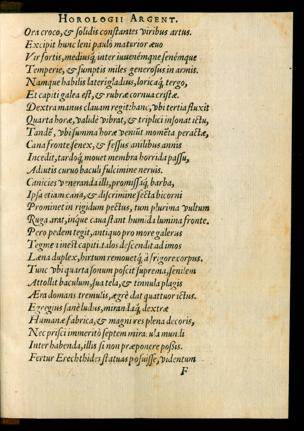 HOROLOGII ARGENT.
Ora croco, & solidis constantes viribus artus.
Excipit hunc leni paulo maturior æuo
Vir fortis, mediusq́; inter iuuenémque senémque
Temperie, & sumptis miles generosus in armis.
Namque habilis lateri gladius, loricaq́; tergo,
Et capiti galea est, & rubræ cornua cristæ.
Dextra manus clauam regit: hanc, vbi tertia fluxit
Quarta horæ, validè vibrat, & triplici insonat ictu,
Tandē, vbi summa horæ veniūt momēta peractæ,
Cana fronte senex, & fessus anilibus annis
Incedit, tardoq́; mouet membra horrida passu,
Adiutis curuo baculi fulcimine neruis.
Canicies veneranda illi, promissaq́; barba,
Ipsa etiam cana, & discrimine secta bicorni
Prominet in rigidum pectus, tum plurima vultum
Ruga arat, inque caua stant humida lumina fronte.
Pero pedem tegit, antiquo pro more galerus
Tegmen inest capiti. talos descendit ad imos
Læna duplex, hirtum remouetq́; à frigore corpus.
Tunc vbi quarta sonum poscit suprema, senilem
Attollit baculum, sua tela, & tinnula plagis
Æra domans tremulis, ægrè dat quattuor ictus.
Egregius sanè ludus, mirandaq́; dextræ
Humanæ fabrica, & magni res plena decoris,
Nec prisci immeritò septem miracula mundi
Inter habenda, illis si non præponere possis.
Fertur Erechthides statuas posuisse, videntum
F